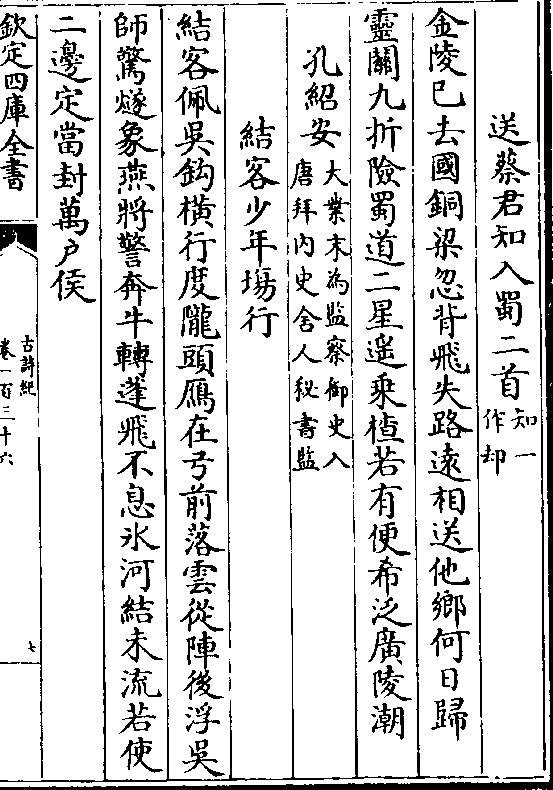 送蔡君知入蜀二首知一作却
金陵已去國銅梁忽背飛失路遠相送他鄉何日歸
靈關九折險蜀道二星遥乘楂若有便希泛廣陵潮
孔紹安大業末為監察御史入唐拜内史舍人秘書監
結客少年塲行
結客佩吳鈎横行度隴頭鴈在弓前落雲從陣後浮吳
師驚燧象燕將警奔牛轉蓬飛不息氷河結未流若使
二邊定當封萬户侯
欽定四庫全書
古詩紀
卷一百三十六
七